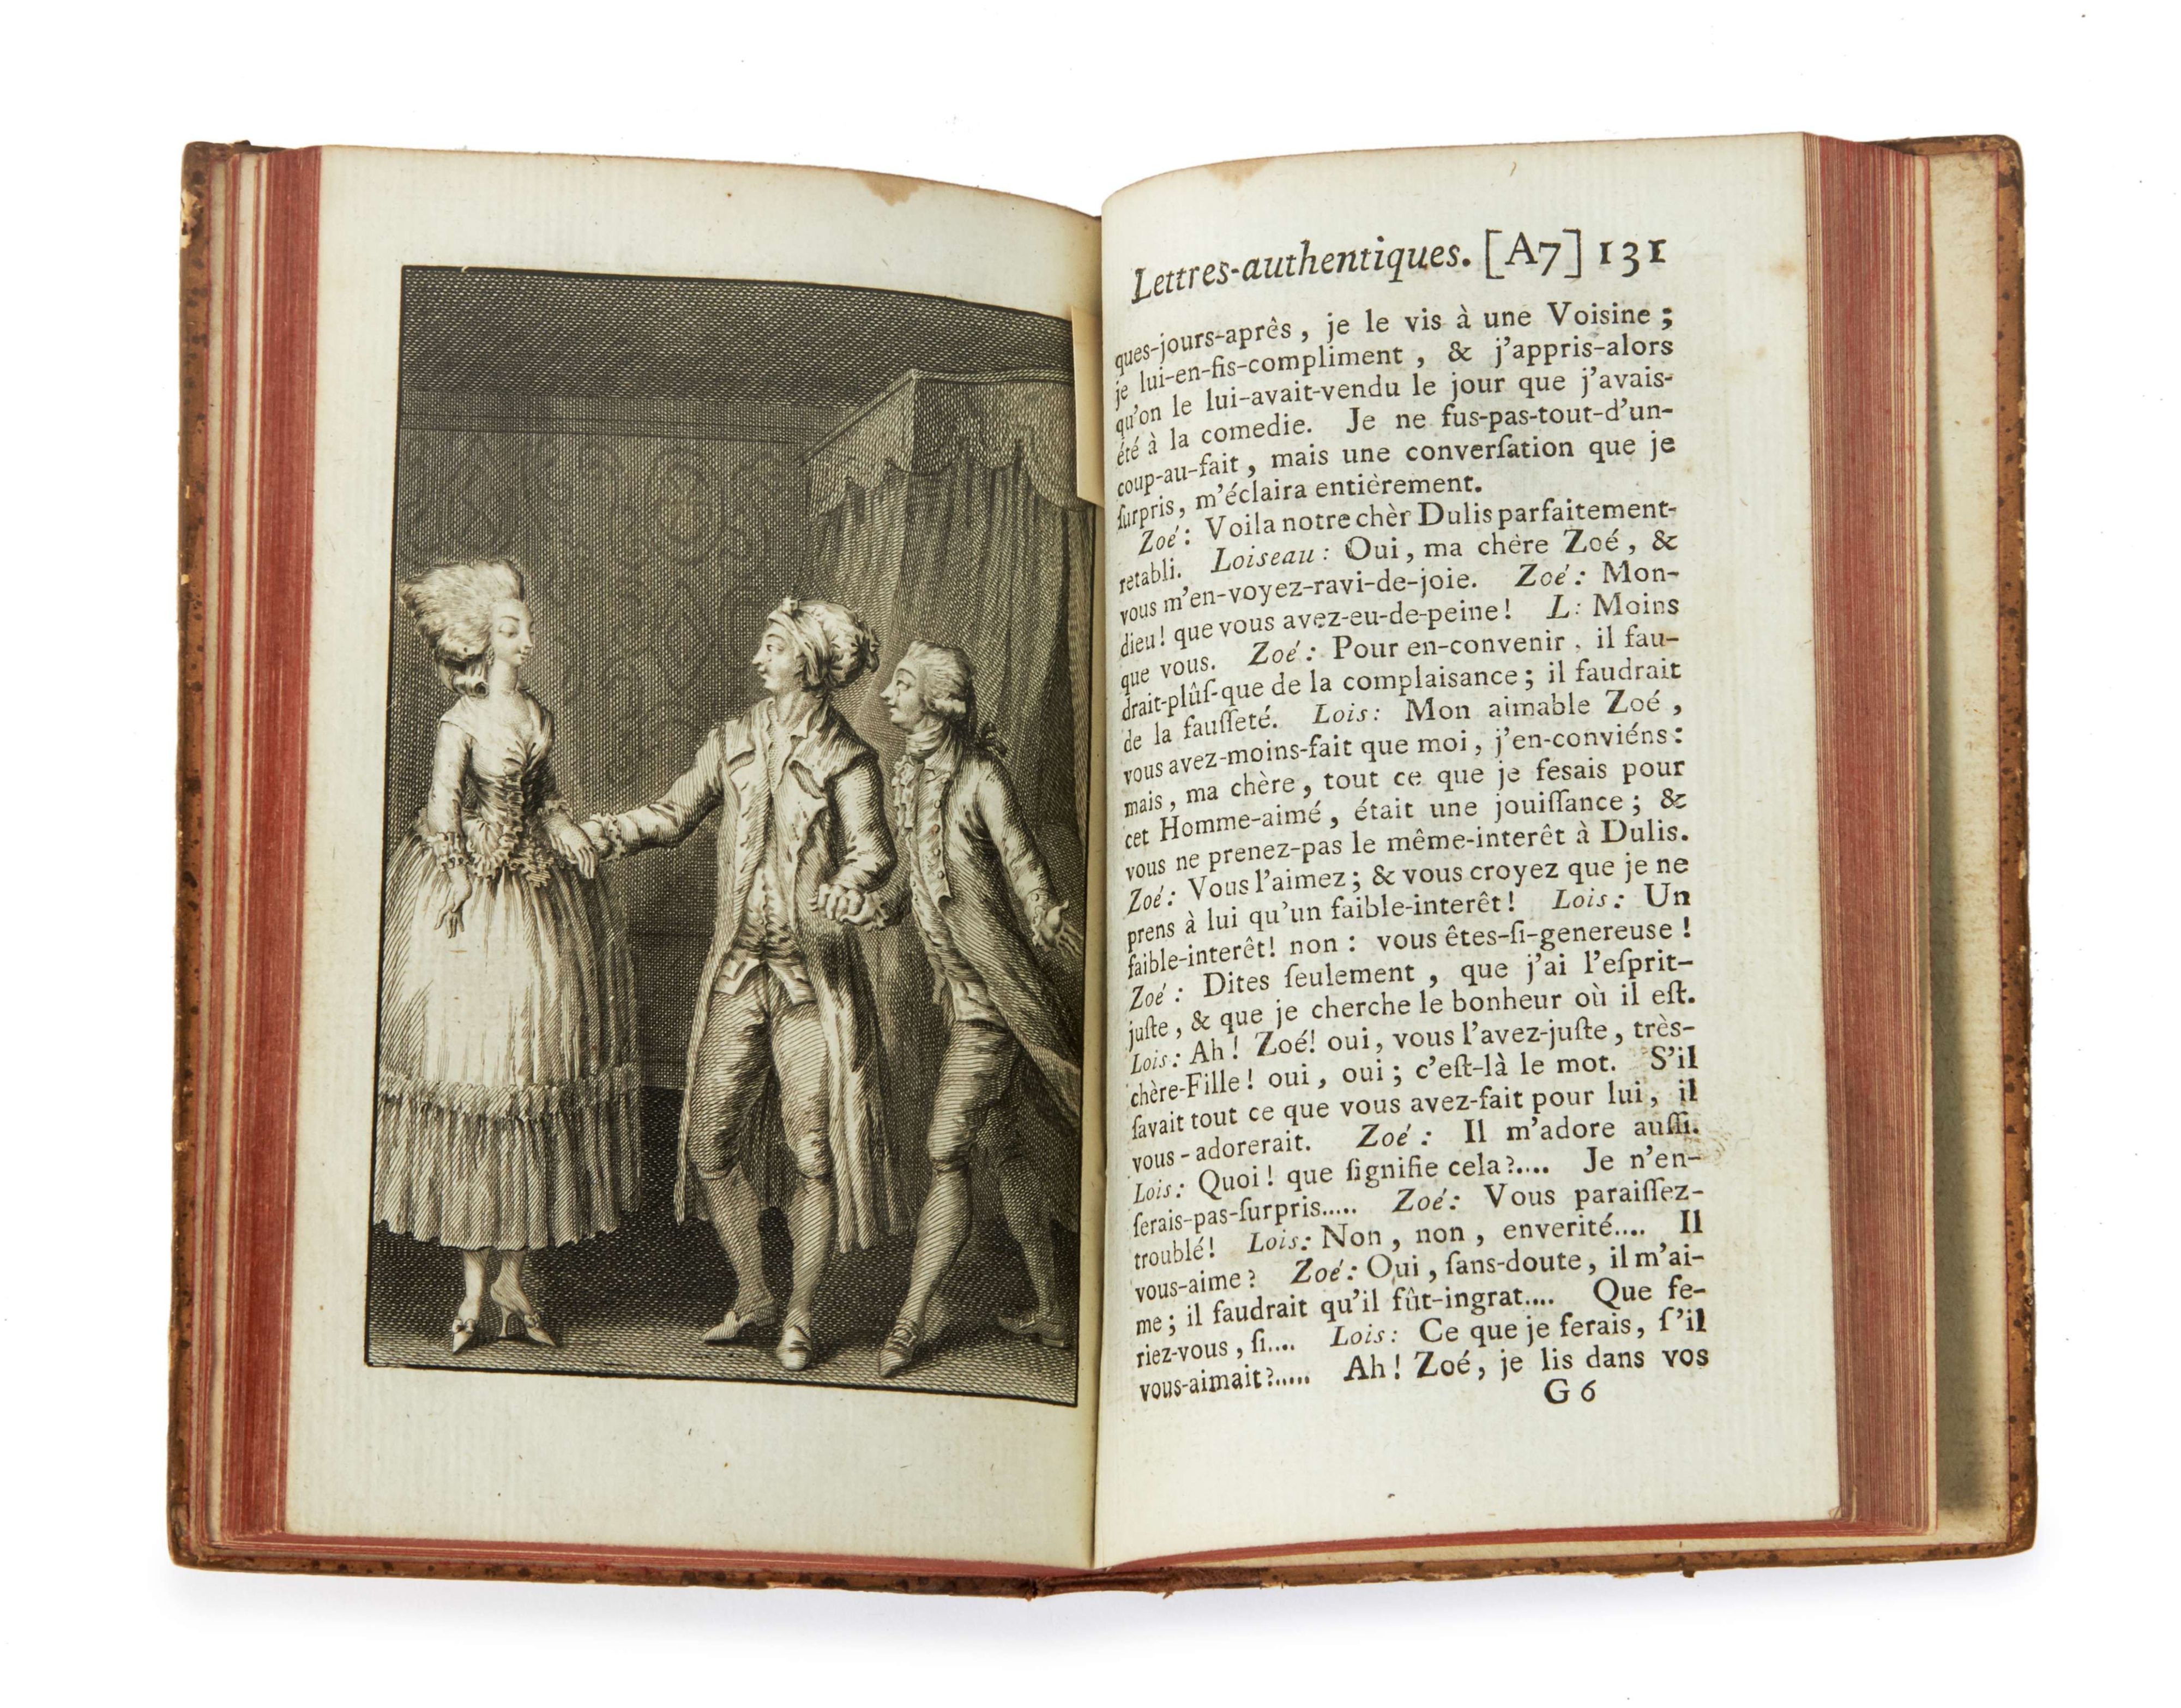 Lettres-authentiques. [A7] 131
ques-jours-aprês, je le vis à une Voisine ;
je lui-en-fis-compliment, & j'appris-alors
qu'on le lui-avait-vendu le jour que j'avais-
été à la comedie. Je ne fus-pas-tout-d'un-
coup-au-fait, mais une converſation que je
ſurpris, m'éclaira entièrement.
Zoé : Voila notre chèr Dulis parfaitement-
retabli. Loiseau : Oui, ma chère Zoé, &
vous m'en-voyez-ravi-de-joie. Zoé : Mon-
dieu ! que vous avez-eu-de-peine ! L : Moins
que vous. Zoé : Pour en-convenir, il fau-
drait-plûſ-que de la complaisance ; il faudrait
de la fauſſeté. Lois : Mon aimable Zoé,
vous avez-moins-fait que moi, j'en-conviéns :
mais, ma chère, tout ce que je fesais pour
cet Homme-aimé, était une jouiſſance ; &
vous ne prenez-pas le même-interêt à Dulis.
Zoé : Vous l'aimez ; & vous croyez que je ne
prens à lui qu'un faible-interêt ! Lois : Un
faible-interêt ! non : vous êtes-ſi-genereuse !
Zoé : Dites ſeulement, que j'ai l'eſprit-
juſte, & que je cherche le bonheur où il eſt.
Lois : Ah ! Zoé ! oui, vous l'avez-juſte, très-
chère-Fille ! oui, oui ; c'eſt-là le mot. S'il
ſavait tout ce que vous avez-fait pour lui, il
vous-adorerait. Zoé : Il m'adore auſſi.
Lois : Quoi ! que ſignifie cela ?.... Je n'en-
ſerais-pas-ſurpris..... Zoé : Vous paraiſſez-
troublé ! Lois : Non, non, enverité.... Il
vous-aime ? Zoé : Oui, ſans-doute, il m'ai-
me ; il faudrait qu'il fût-ingrat.... Que fe-
riez-vous, ſi.... Lois : Ce que je ferais, ſ'il
vous-aimait ?..... Ah ! Zoé, je lis dans vos
G 6